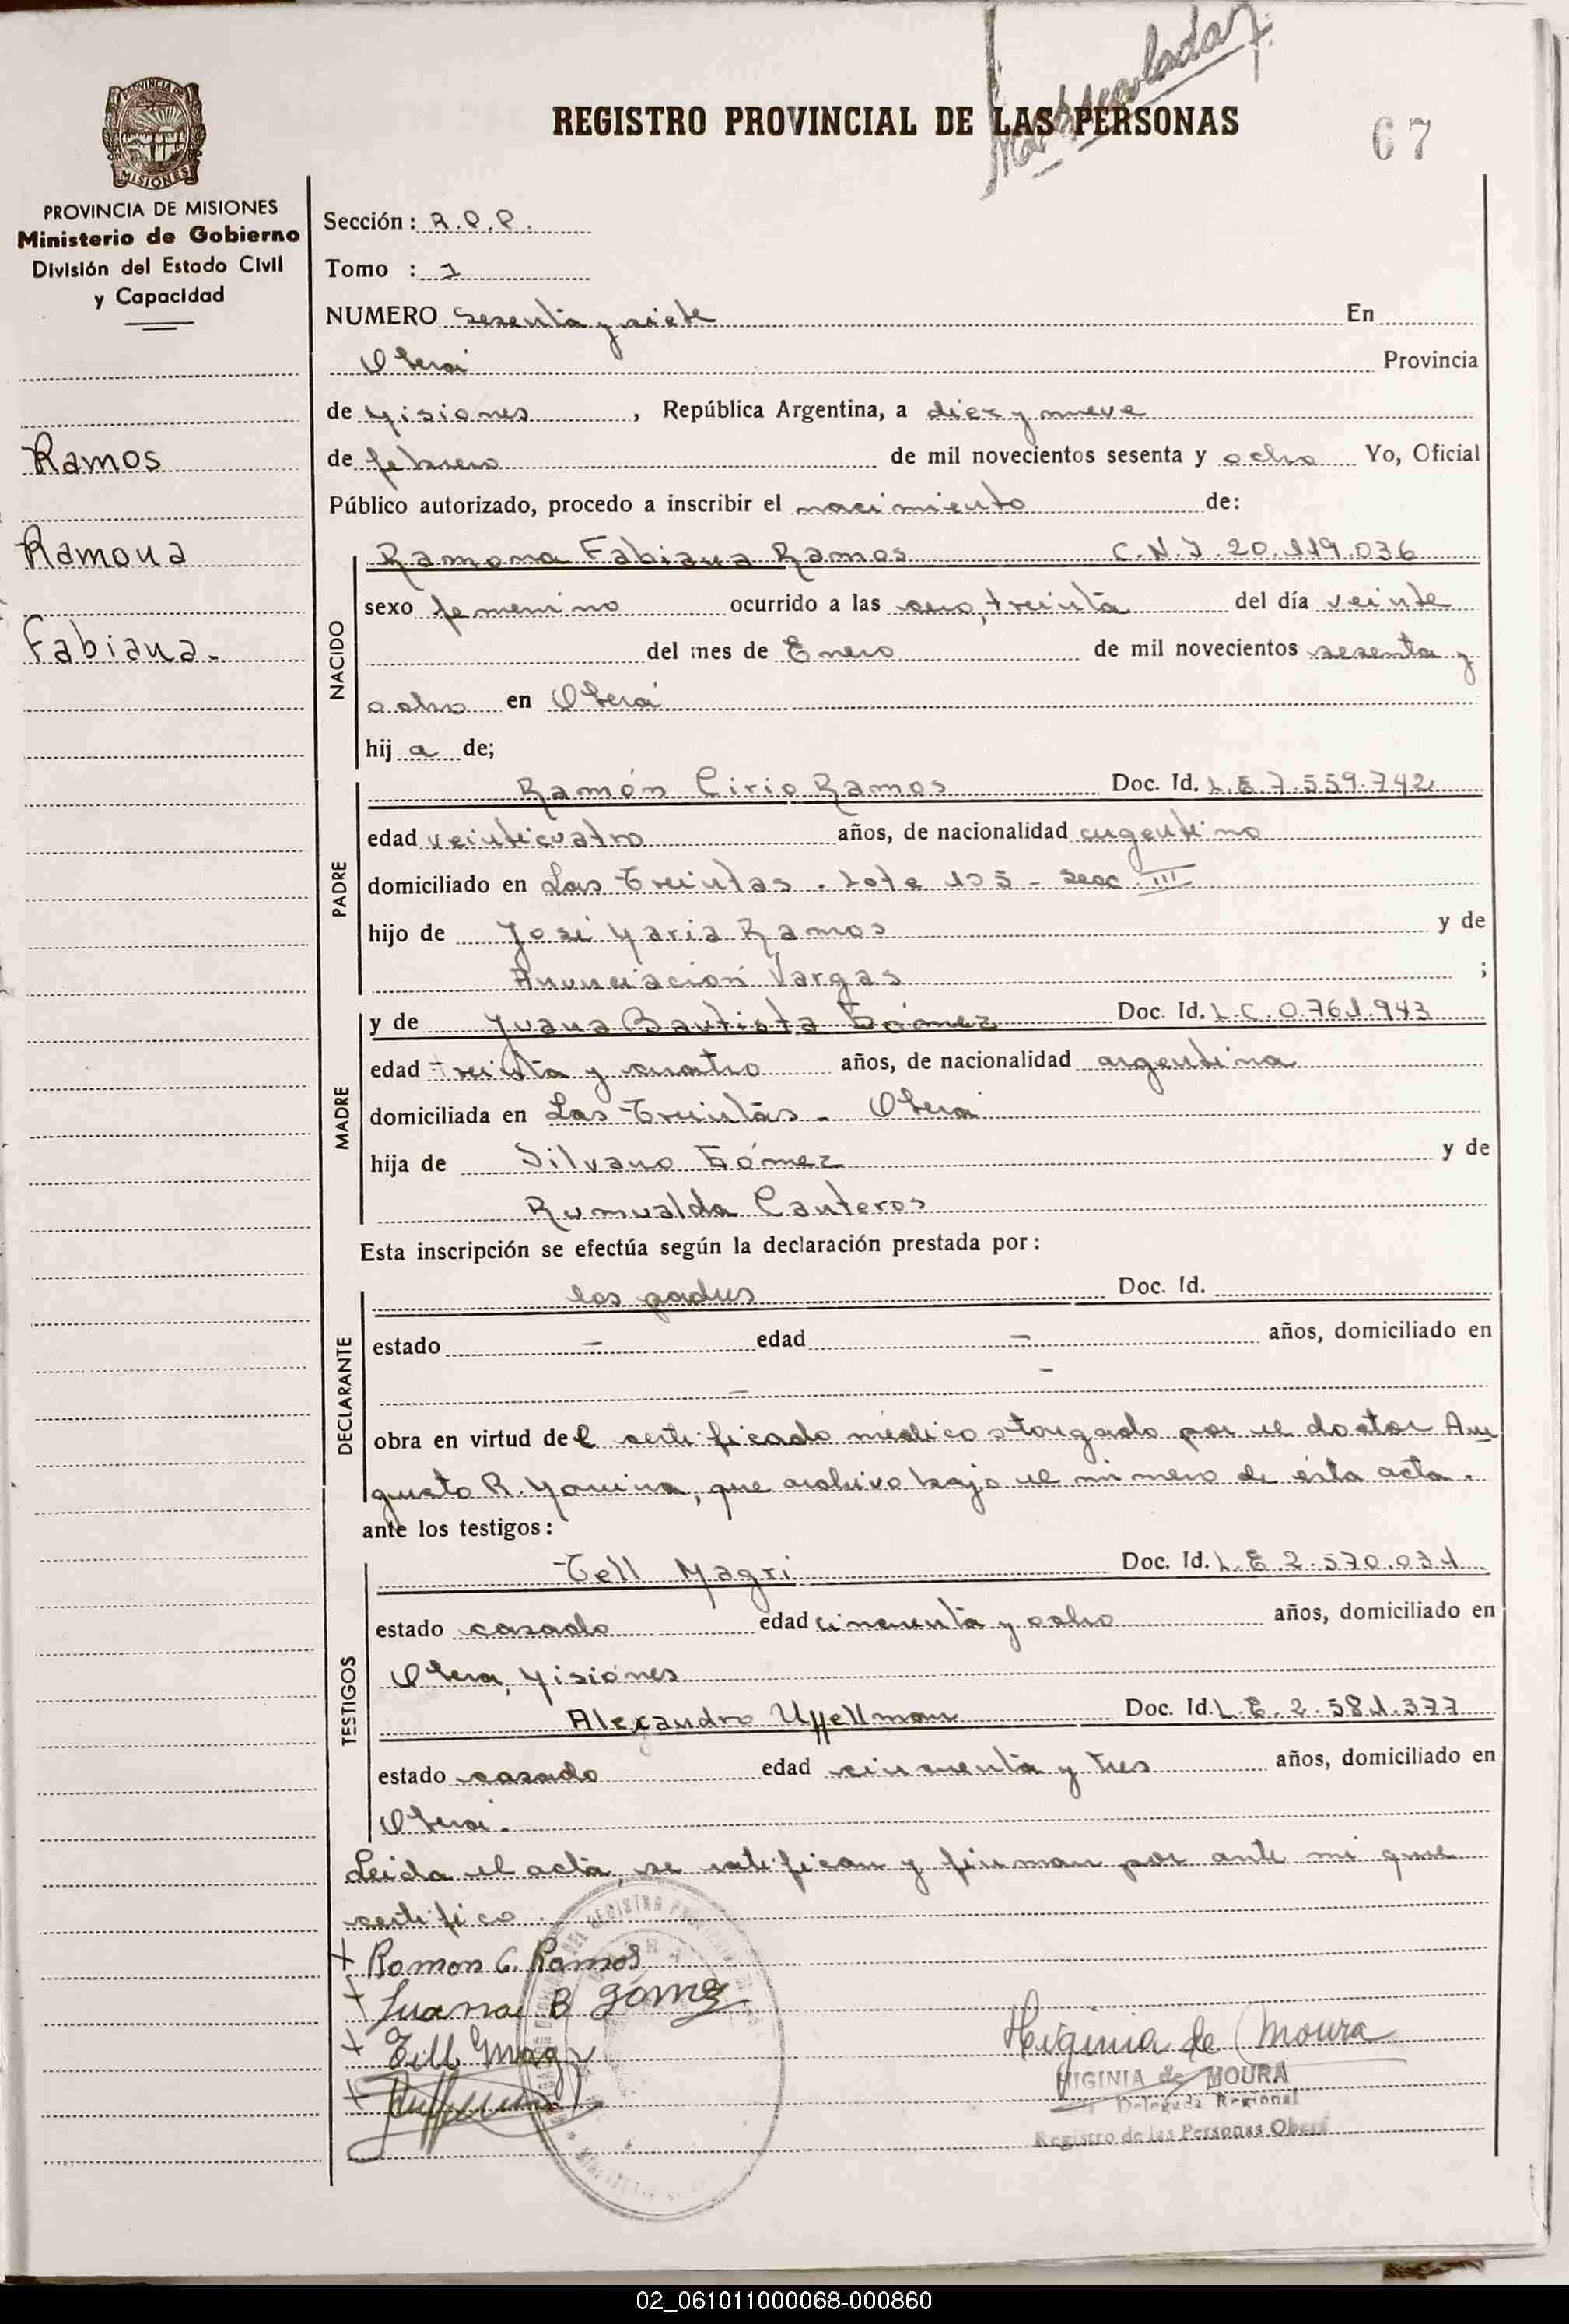 Matriculada
REGISTRO PROVINCIAL DE LAS PERSONAS
67
PROVINCIA DE MISIONES
Ministerio de Gobierno
División del Estado Civil
y Capacidad
Ramos
Ramona
Fabiana.-
Sección: R.P.P.
Tomo : 1
NUMERO sesenta y siete En
Oberá Provincia
de Misiones, República Argentina, a diez y nueve
de febrero de mil novecientos sesenta y ocho Yo, Oficial
Público autorizado, procedo a inscribir el nacimiento de:
NACIDO
Ramona Fabiana Ramos C.N.I. 20.119.036
sexo femenino ocurrido a las cero, treinta del día veinte
del mes de Enero de mil novecientos sesenta y
ocho en Oberá
hij a de;
PADRE
Ramón Cirio Ramos Doc. Id. L.E 7.559.742
edad veinticuatro años, de nacionalidad argentino
domiciliado en Las Treintas. Lote 105 - Secc. III
hijo de José Maria Ramos y de
Anunciación Vargas ;
MADRE
y de Juana Bautista Gómez Doc. Id. L.C. 0.761.943
edad treinta y cuatro años, de nacionalidad argentina
domiciliada en Las Treintas - Oberá
hija de Silvano Gómez y de
Rumualda Canteros
Esta inscripción se efectúa según la declaración prestada por:
DECLARANTE
los padres Doc. Id.
estado - edad - años, domiciliado en
- -
obra en virtud del certificado médico otorgado por el doctor Au
gusto R. que archivo bajo el número de ésta acta.
ante los testigos:
TESTIGOS
Tell Magri Doc. Id. L.E. 2.570.031
estado casado edad cincuenta y ocho años, domiciliado en
Obera, Misiones
Alejandro Uffellman Doc. Id. L.E. 2.581.377
estado casado edad cincuenta y tres años, domiciliado en
Oberá.
Leida el acta, se ratifican y firman por ante mi que
certifico.
+ Ramon C. Ramos
+ Juana B Gómez
+ Tell Magri
+
Higinia de Moura
HIGINIA de MOURA
Delegada Regional
Registro de las Personas Oberá
02_061011000068-000860